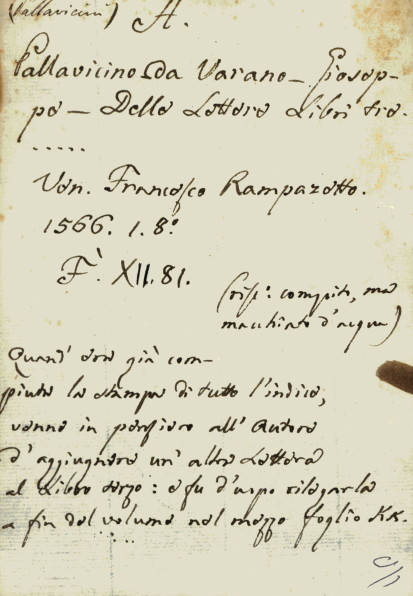 (Pallavicini) A.
Pallavicino da Varano — Giosep-
po — Delle Lettere Libri tre.
.....
Ven. Francesco Rampazetto.
1566. 1. 8.º
F. XII. 81.
compito, ma
macchiato d'acqua)
Quand' era già com-
piuta la stampa di tutto l'indice,
venne in pensiero all' Autore
d' aggiugnere un' altra Lettera
al Libro terzo: e fu d'uopo rilegarla
a fin del volume nel mezzo foglio KK.